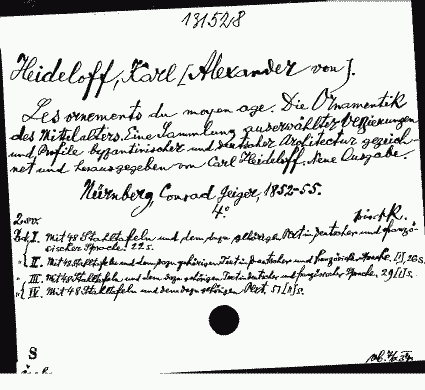 131528
Heideloff, Karl [Alexander von].
Les ornements du moyen age. Die Ornamentik
des Mittelalters. Eine Sammlung auserwählter Verzierungen
und Profile byzantinischer und deutscher Architectur gezeich-
net und herausgegeben von Carl Heideloff. Neue Ausgabe.
Nürnberg, Conrad Geiger, 1852-55.
4°
Bd. I. Mit 48 Stahltafeln und dem dazu gehörigen Text in deutscher und französi-
sischer Sprache. 22 s.
II. Mit 48 Stahltafeln und dem dazu gehörigen Text in deutscher und französischer Sprache. [1], 26 s.
III. Mit 48 Stahltafeln und dem dazu gehörigen Text in deutscher und französischer Sprache. 29 [1] s.
IV. Mit 48 Stahltafeln und dem dazu gehörigen Text. 51 [1] s.
S